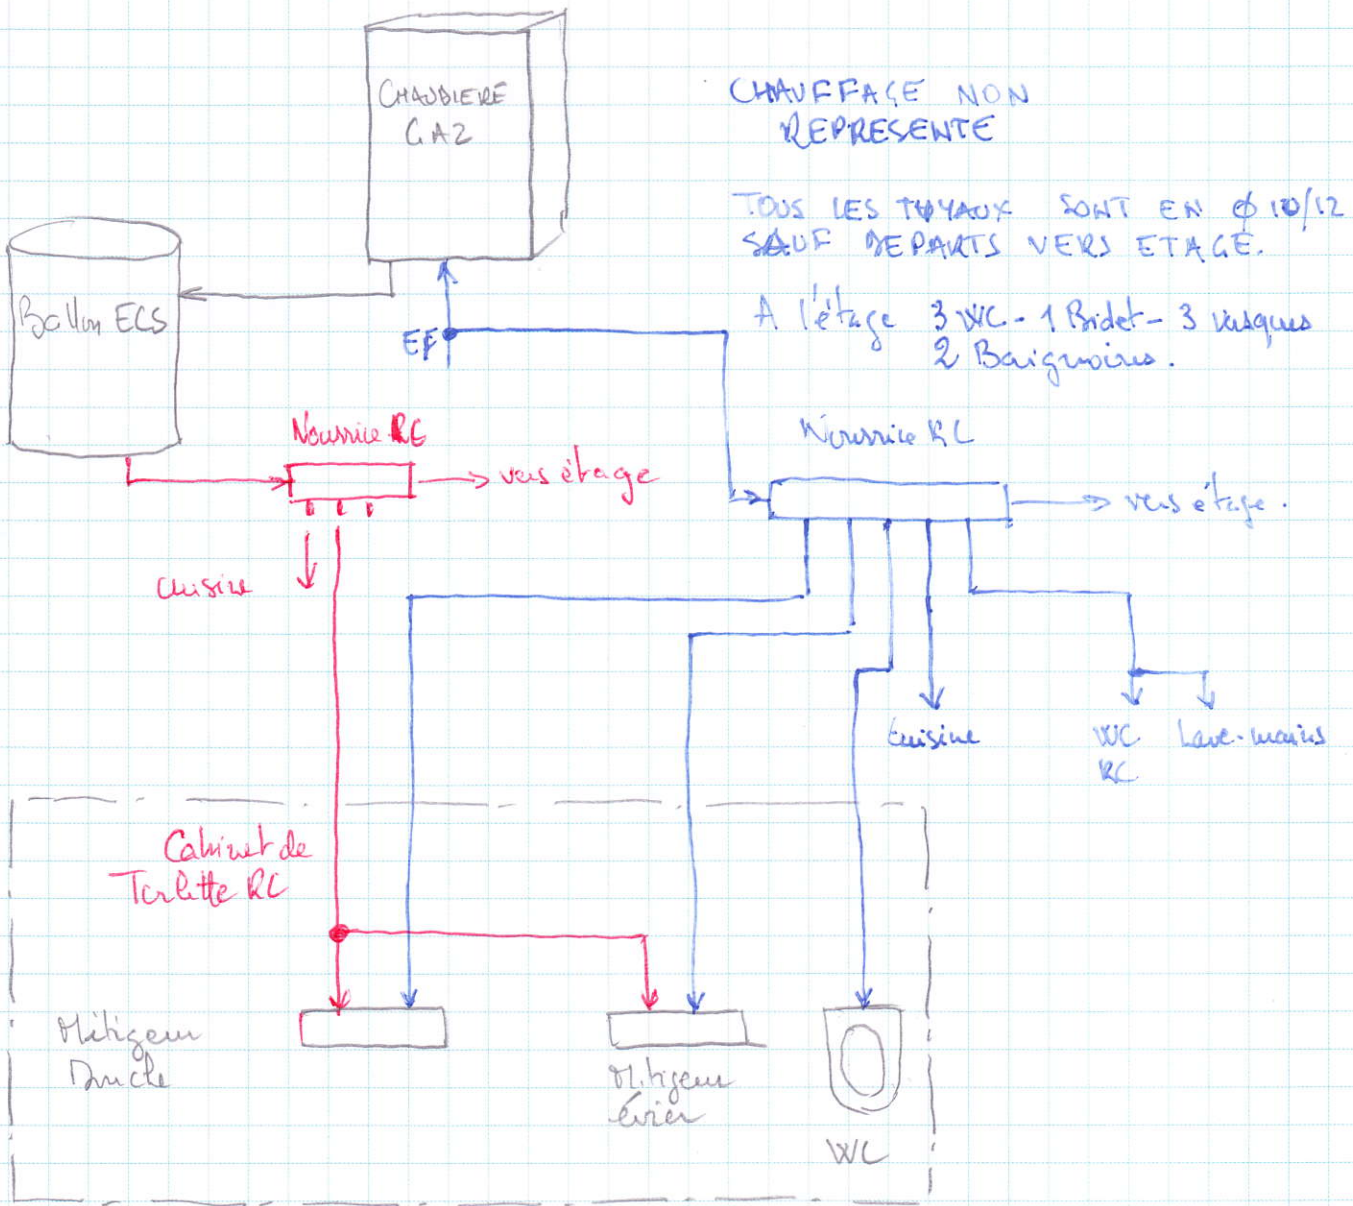 CHAUDIERE
GAZ
CHAUFFAGE NON
REPRESENTE
TOUS LES TUYAUX SONT EN ϕ 10/12
SAUF DEPARTS VERS ETAGE.
A l'étage 3 WC - 1 Bidet - 3 vasques
2 Baignoires.
Ballon ECS
EF
Nourrice RC
vers étage
Nourrice RC
vers étage.
Cuisine
Cuisine
WC
RC
Lave-mains
Cabinet de
Toilette RC
Mitigeur
Douche
Mitigeur
évier
WC